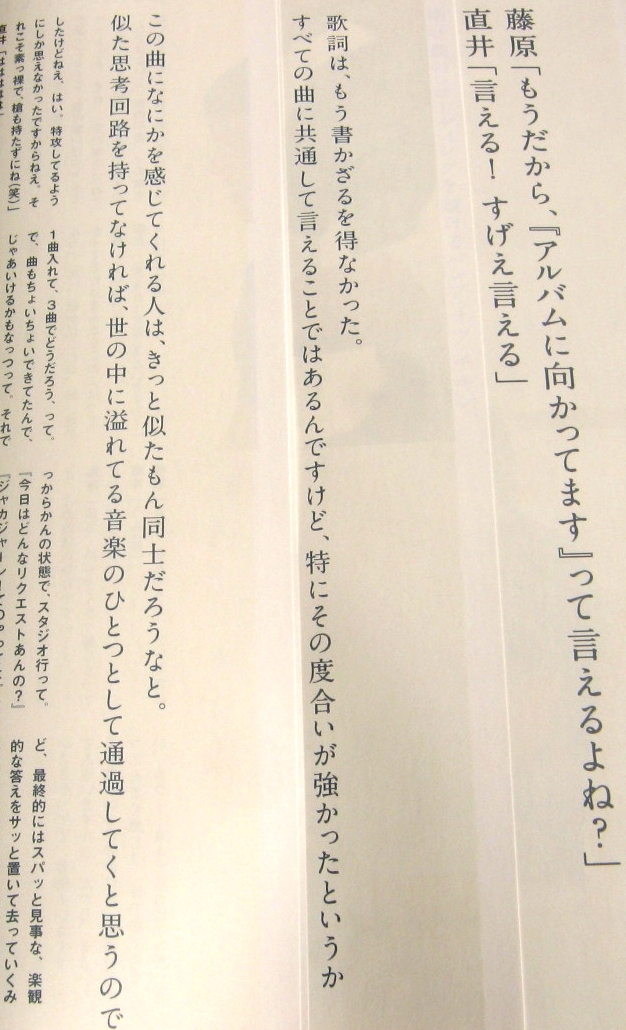 藤原「もうだから、『アルバムに向かってます』って言えるよね？」
直井「言える！　すげえ言える」
歌詞は、もう書かざるを得なかった。
すべての曲に共通して言えることではあるんですけど、特にその度合いが強かったというか
この曲になにかを感じてくれる人は、きっと似たもん同士だろうなと。
似た思考回路を持ってなければ、世の中に溢れてる音楽のひとつとして通過してくと思うので
したけどねえ、はい。特攻してるよう
にしか思えなかったですからねえ。そ
れこそ素っ裸で、槍も持たずにね（笑）」
直井「はははは」
1曲入れて、3曲でどうだろう、って。
で、曲もちょいちょいできてたんで、
じゃあいけるかもなっつって。それで
っからかんの状態で、スタジオ行って。
『今日はどんなリクエストあんの？』
ど、最終的にはスパッと見事な、楽観
的な答えをサッと置いて去っていくみ